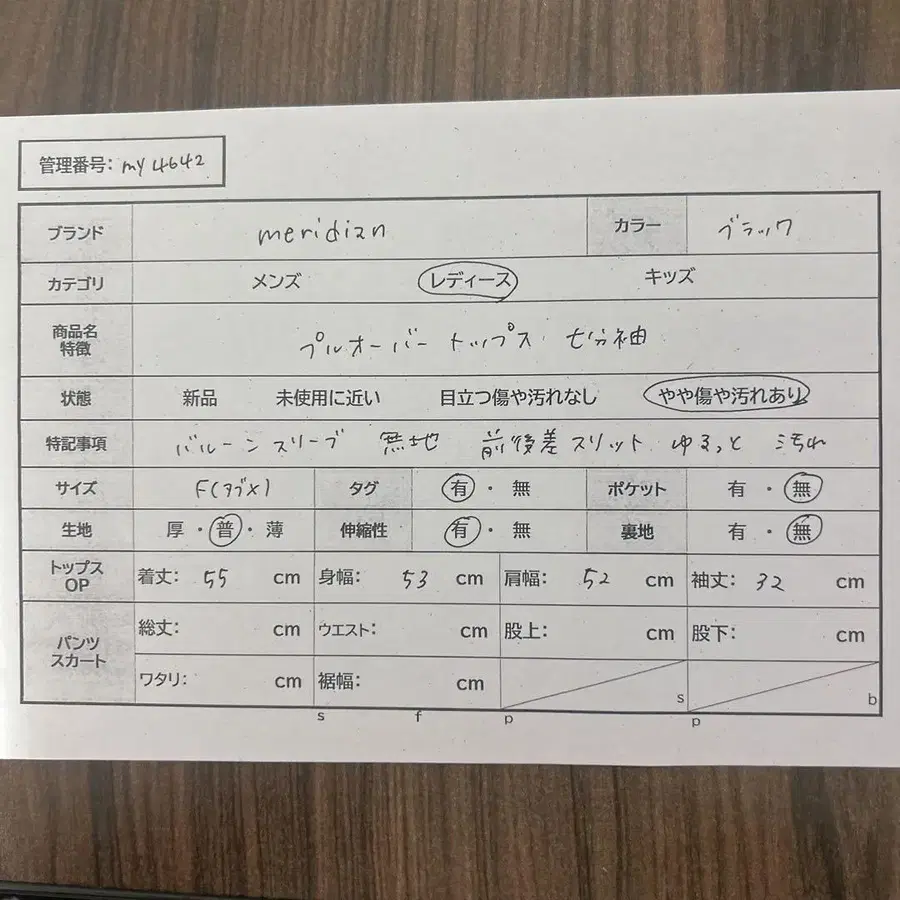 管理番号: my 4642
ブランド meridian カラー ブラック
カテゴリ メンズ レディース キッズ
商品名 特徴 プルオーバー トップス 七分袖
状態 新品 未使用に近い 目立つ傷や汚れなし やや傷や汚れあり
特記事項 バルーンスリーブ 無地 前後差スリット ゆるっと 汚れ
サイズ F(タグ×) タグ 有 ・ 無 ポケット 有 ・ 無
生地 厚 ・ 普 ・ 薄 伸縮性 有 ・ 無 裏地 有 ・ 無
トップス OP 着丈: 55 cm 身幅: 53 cm 肩幅: 52 cm 袖丈: 32 cm
パンツ スカート 総丈: cm ウエスト: cm 股上: cm 股下: cm
ワタリ: cm 裾幅: cm s b
s f p p